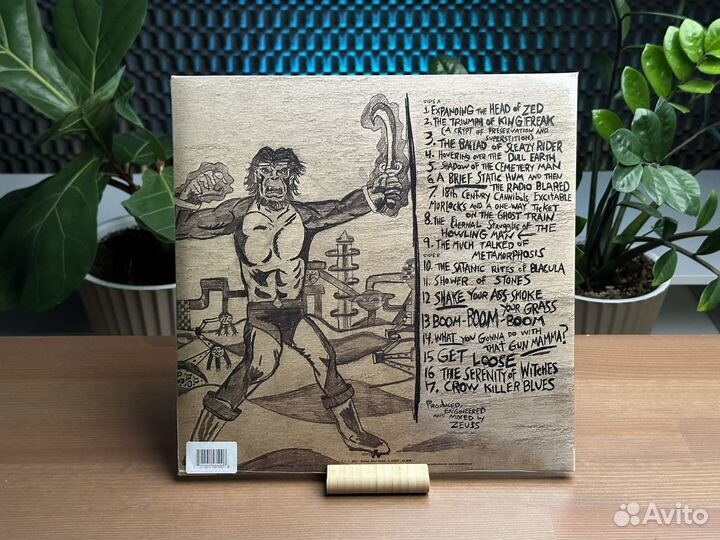 SIDE A
1. EXPANDING THE HEAD OF ZED
2. THE TRIUMPH OF KING FREAK
(A CRYPT OF PRESERVATION AND
SUPERSTITION)
3. THE BALLAD OF SLEAZY RIDER
4. HOVERING OVER THE DULL EARTH
5. SHADOW OF THE CEMETERY MAN
6. A BRIEF STATIC HUM AND THEN
THE RADIO BLARED
7. 18th CENTURY CANNIBALS, EXCITABLE
MORLOCKS AND A ONE-WAY TICKET
ON THE GHOST TRAIN
8. THE ETERNAL STRUGGLES OF THE
HOWLING MAN
9. THE MUCH TALKED OF
METAMORPHOSIS
SIDE B
10. THE SATANIC RITES OF BLACULA
11. SHOWER OF STONES
12 SHAKE YOUR ASS-SMOKE
YOUR GRASS
13 BOOM-BOOM-BOOM
14. WHAT YOU GONNA DO WITH
THAT GUN MAMMA?
15 GET LOOSE
16 THE SERENITY OF WITCHES
17. CROW KILLER BLUES
PRODUCED,
ENGINEERED
AND MIXED by
ZEUSS
Avito